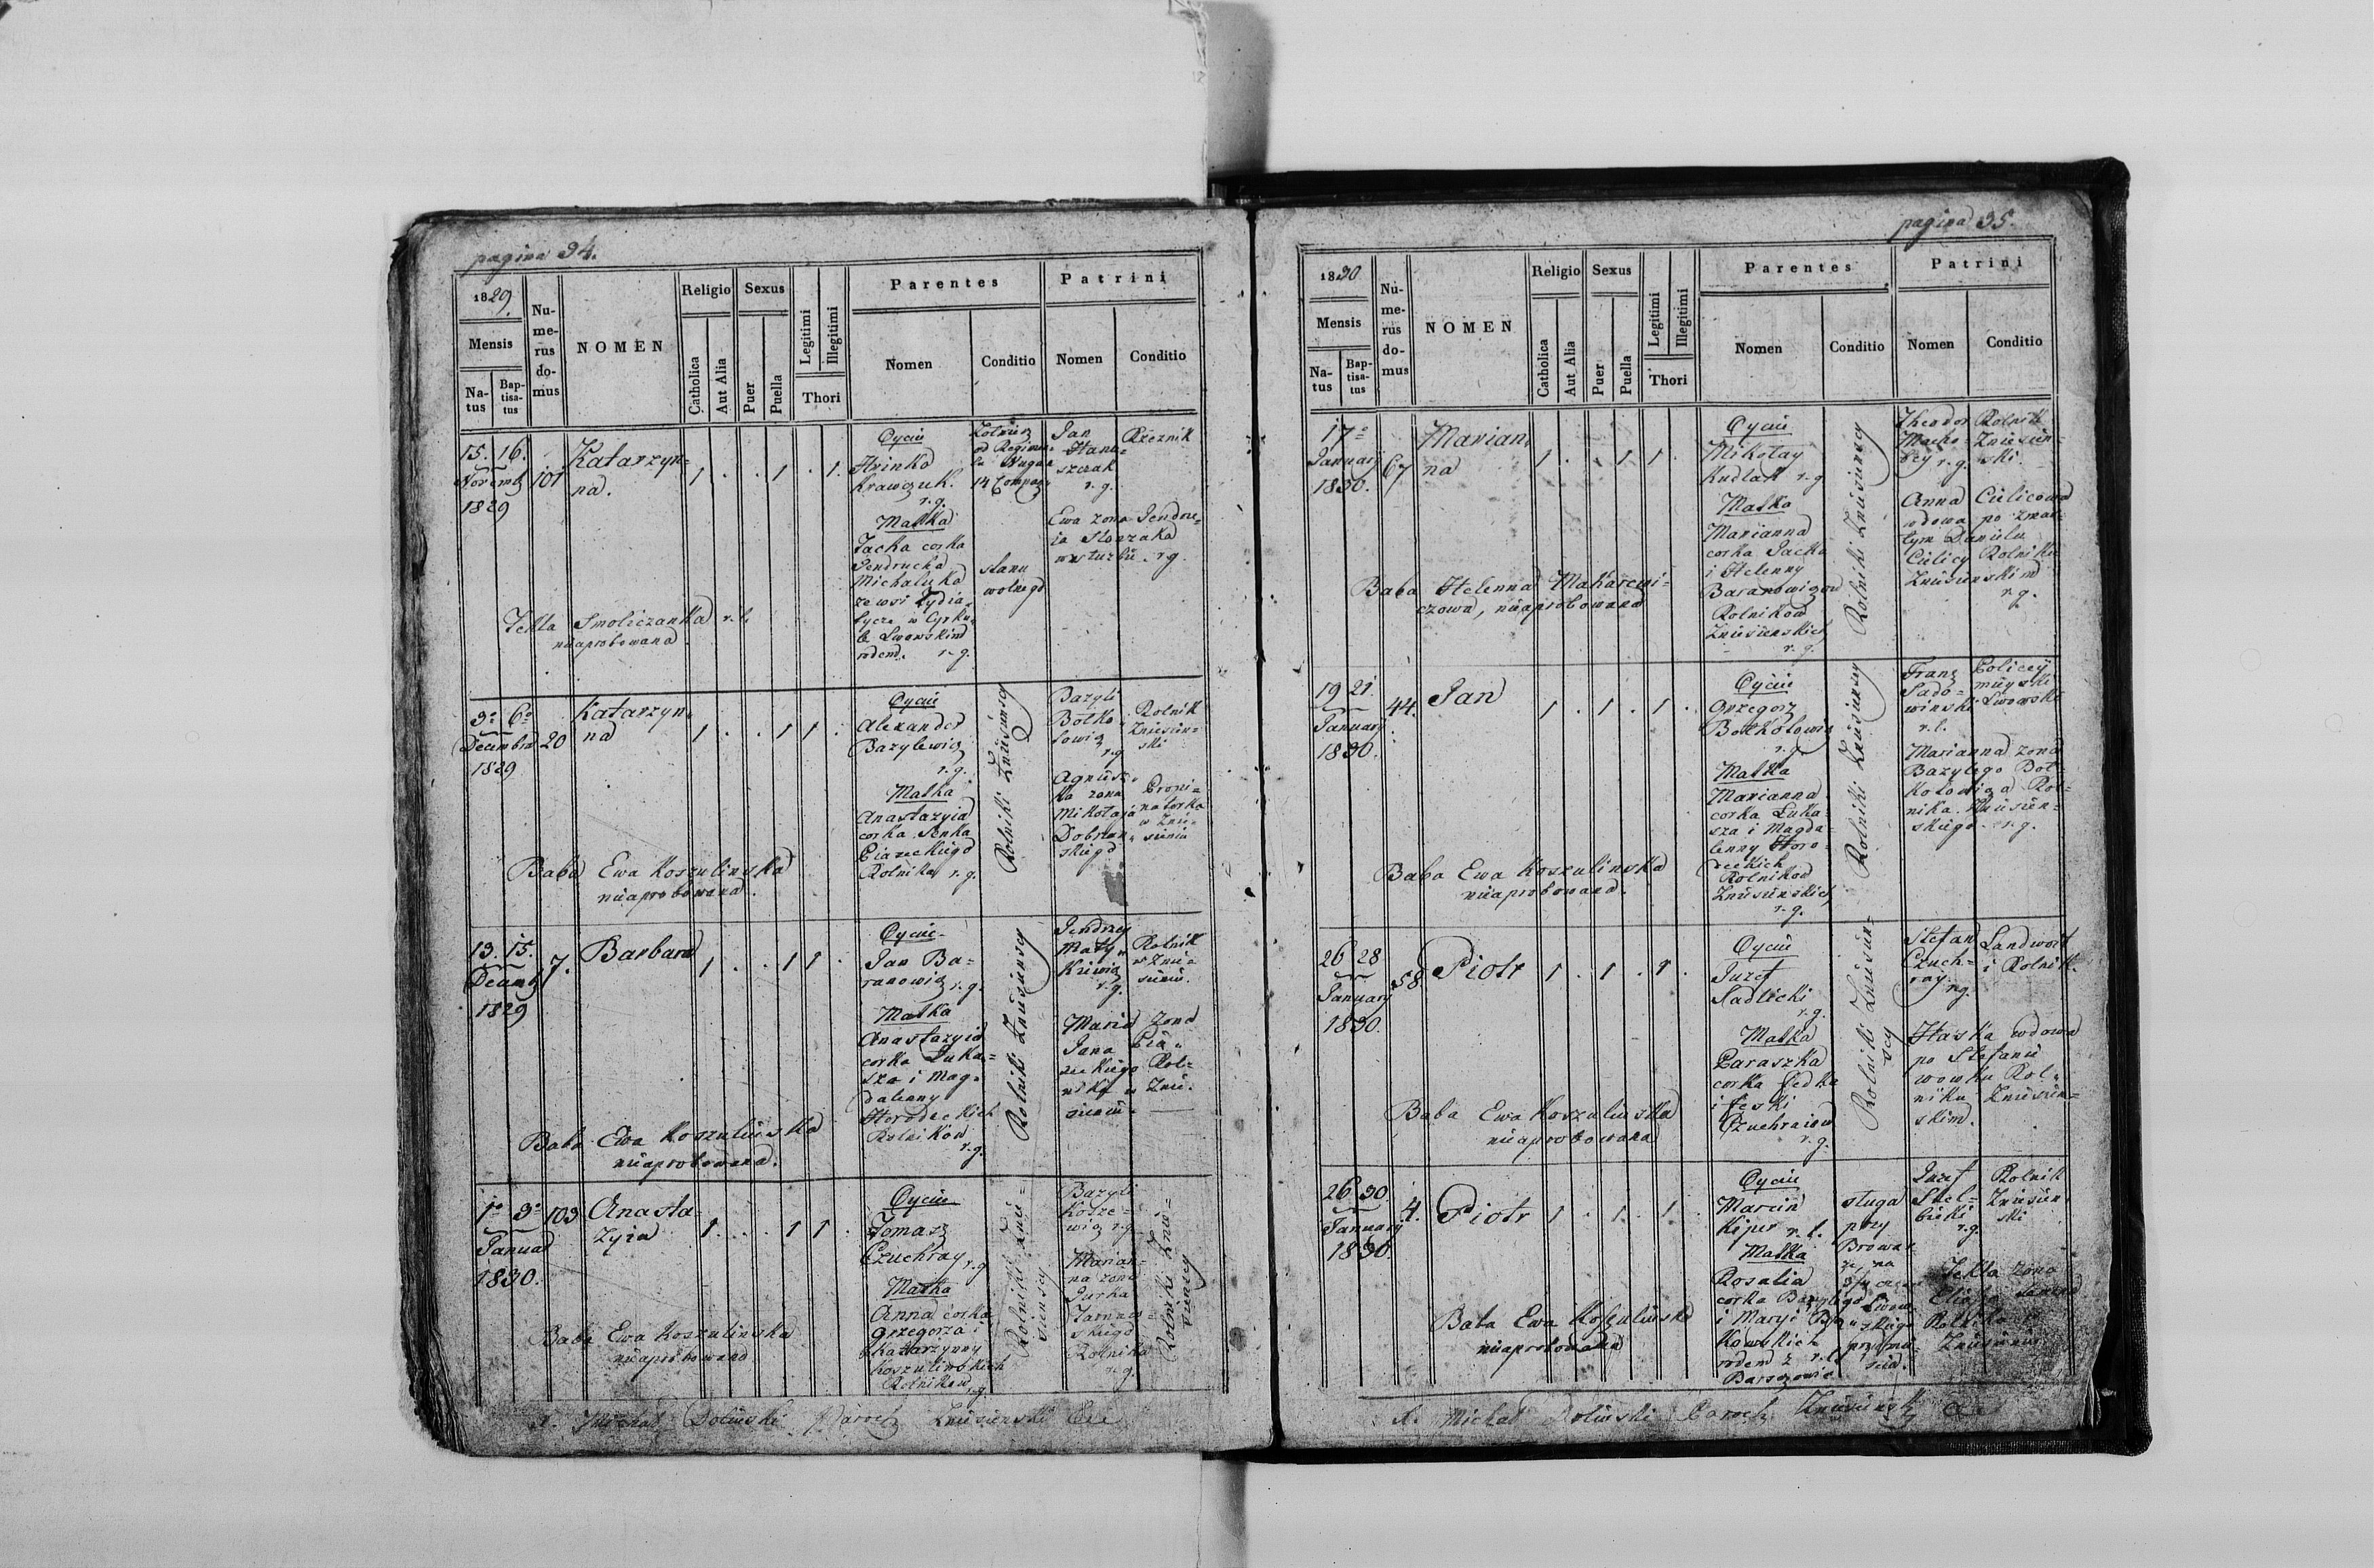 pagina 34.
1829.
Mensis
Na-
tus
Bap-
tisa-
tus
Nu-
me-
rus
do-
mus
NOMEN
Religio
Catholica
Aut Alia
Sexus
Puer
Puella
Legitimi
Illegitimi
Thori
Parentes
Nomen
Conditio
Patrini
Nomen
Conditio
15. 16.
Novemb
1829
101
Katarzyn-
na.
1 . . 1 . 1.
Oycie
Hrinko
Krawczuk.
r. g.
Matka
Jacha corka
Jendrucha
Michaluka
ze wsi Zydia-
tycze w Cyrku-
le Lwowskim
rodem. r. g.
Zolnierz
14 Compag
stanu
wolnego
Jan
Hanu-
szczak
r. g.
Rzeznik
Ewa zona Jendrze-
ia Slorzaka
w sturbie. r g.
Tekla Smoliczanka r. l.
nieaprobowana.
3o 6o
Decembra
1829
20
Katarzyn-
na
1 . . 1 1 .
Oycie
Alexander
Bazylewicz
r. g.
Matka
Anastazyia
corka Senka
Piazeckiego
Rolnika r. g.
Rolniki Zniesinscy
Bazyli
Botko-
lowicz
r. g.
Rolnik
Zniesien-
ski
Agniesz-
ka zona
Mikolaja
Dobrzan-
skiego
Propi-
natorka
w Znie-
sieniu
Baba Ewa Koszulinska
nieaprobowana.
13. 15.
Decemb
1829
7.
Barbara
1 . . 1 1 .
Oycie
Jan Ba-
ranowicz r. g.
Matka
Anastazyia
corka Luka-
sza i Mag-
daleny
Horodeckich
Rolnikow
r. g.
Rolniki Zniesinscy
Jendrzey
Maty-
Kiewicz
r. g.
Rolnik
w Znie-
sieniu.
Maria zona
Jana Pia-
zeckiego Rol-
nika w Znie-
sieniu.
Baba Ewa Koszulinska
nieaprobowana.
1o 3o
Januar
1830.
103
Anasta-
zyia
1 . . 1 1 .
Oycie
Tomasz
Czuchray r. g
Matka
Anna corka
Grzegorza i
Katarzynny
Koszulinskich
Rolnikow
r. g.
Rolniki Znie-
sienscy
Bazyli
Kosze-
wicz r. g.
Marian-
na zona
Jurka
Tarnaw-
skiego
Rolnika
r. g.
Rolniki Znie-
sienscy
Baba Ewa Koszulinska
nieaprobowana
X. Michal Polinski Paroch Zniesienski
pagina 35.
1830
Mensis
Na-
tus
Bap-
tisa-
tus
Nu-
me-
rus
do-
mus
NOMEN
Religio
Catholica
Aut Alia
Sexus
Puer
Puella
Legitimi
Illegitimi
Thori
Parentes
Nomen
Conditio
Patrini
Nomen
Conditio
17o
January
1830.
67
Marian-
na
1 . . 1 1 .
Oycie
Mikolay
Kudlak r. g
Matka
Marianna
corka Jacka
i Helenny
Baranowiczow
Rolnikow
Zniesienskich
r. g.
Rolniki Zniesinscy
Theodor
Mocho-
dey r. g.
Rolnik
Zniesien-
ski.
Anna Cielicowa
wdowa po zmar-
lym Danielu
Cielicy Rolniku
Zniesienskim
r. g.
Baba Helenna Makarewi-
czowa, nieaprobowana
19 21.
January
1830.
44.
Jan
1 . 1 . 1 .
Oycie
Grzegorz
Botkolowicz
r. g.
Matka
Marianna
corka Luka-
sza i Magda-
lenny Horo-
deckich
Rolnikow
Zniesienskich
r. g.
Rolniki Zniesinscy
Franz
Sado-
winski
r. l.
Policey
mieyski
Lwowski
Marianna zona
Bazylego Bot-
kolowicza Rol-
nika Zniesien-
skiego. r. g.
Baba Ewa Koszulinska
nieaprobowana.
26 28
January
1830.
58
Piotr
1 . 1 . 1 .
Oycie
Juzef
Sadlicki
r. g.
Matka
Paraszka
corka Fedka
i Feski
Czuchraiow
r. g.
Rolniki Zniesien-
scy
Stefan
Czuch-
ray.
r. g.
Landwort
i Rolnik.
Haska wdowa
po Stefanie
wowku Rol-
niku Zniesien-
skim.
Baba Ewa Koszulinska
nieaprobowana
26 30.
January
1830.
4.
Piotr
1 . 1 . 1 .
Oycie
Marcin
Kiper r. l.
Matka
Rosalia
corka Bazylego
i Maryi
kowskich
rodem z r. l.
Barszowic
sluga
przy
Browar
ze, na
Lwow-
skiego
przedmie-
scia.
Juzef
Skel-
bicki
r. g.
Rolnik
Zniesien-
ski
Tekla zona
Rolnika
Zniesieniu
Baba Ewa Koszulinska
nieaprobowana
X. Michal Polinski Paroch Zniesiensk